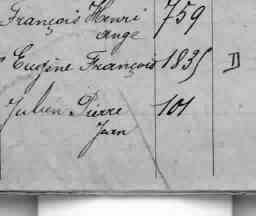 François Henri 759
Ange
Eugène François 1835 D
Julien Pierre 101
Jean